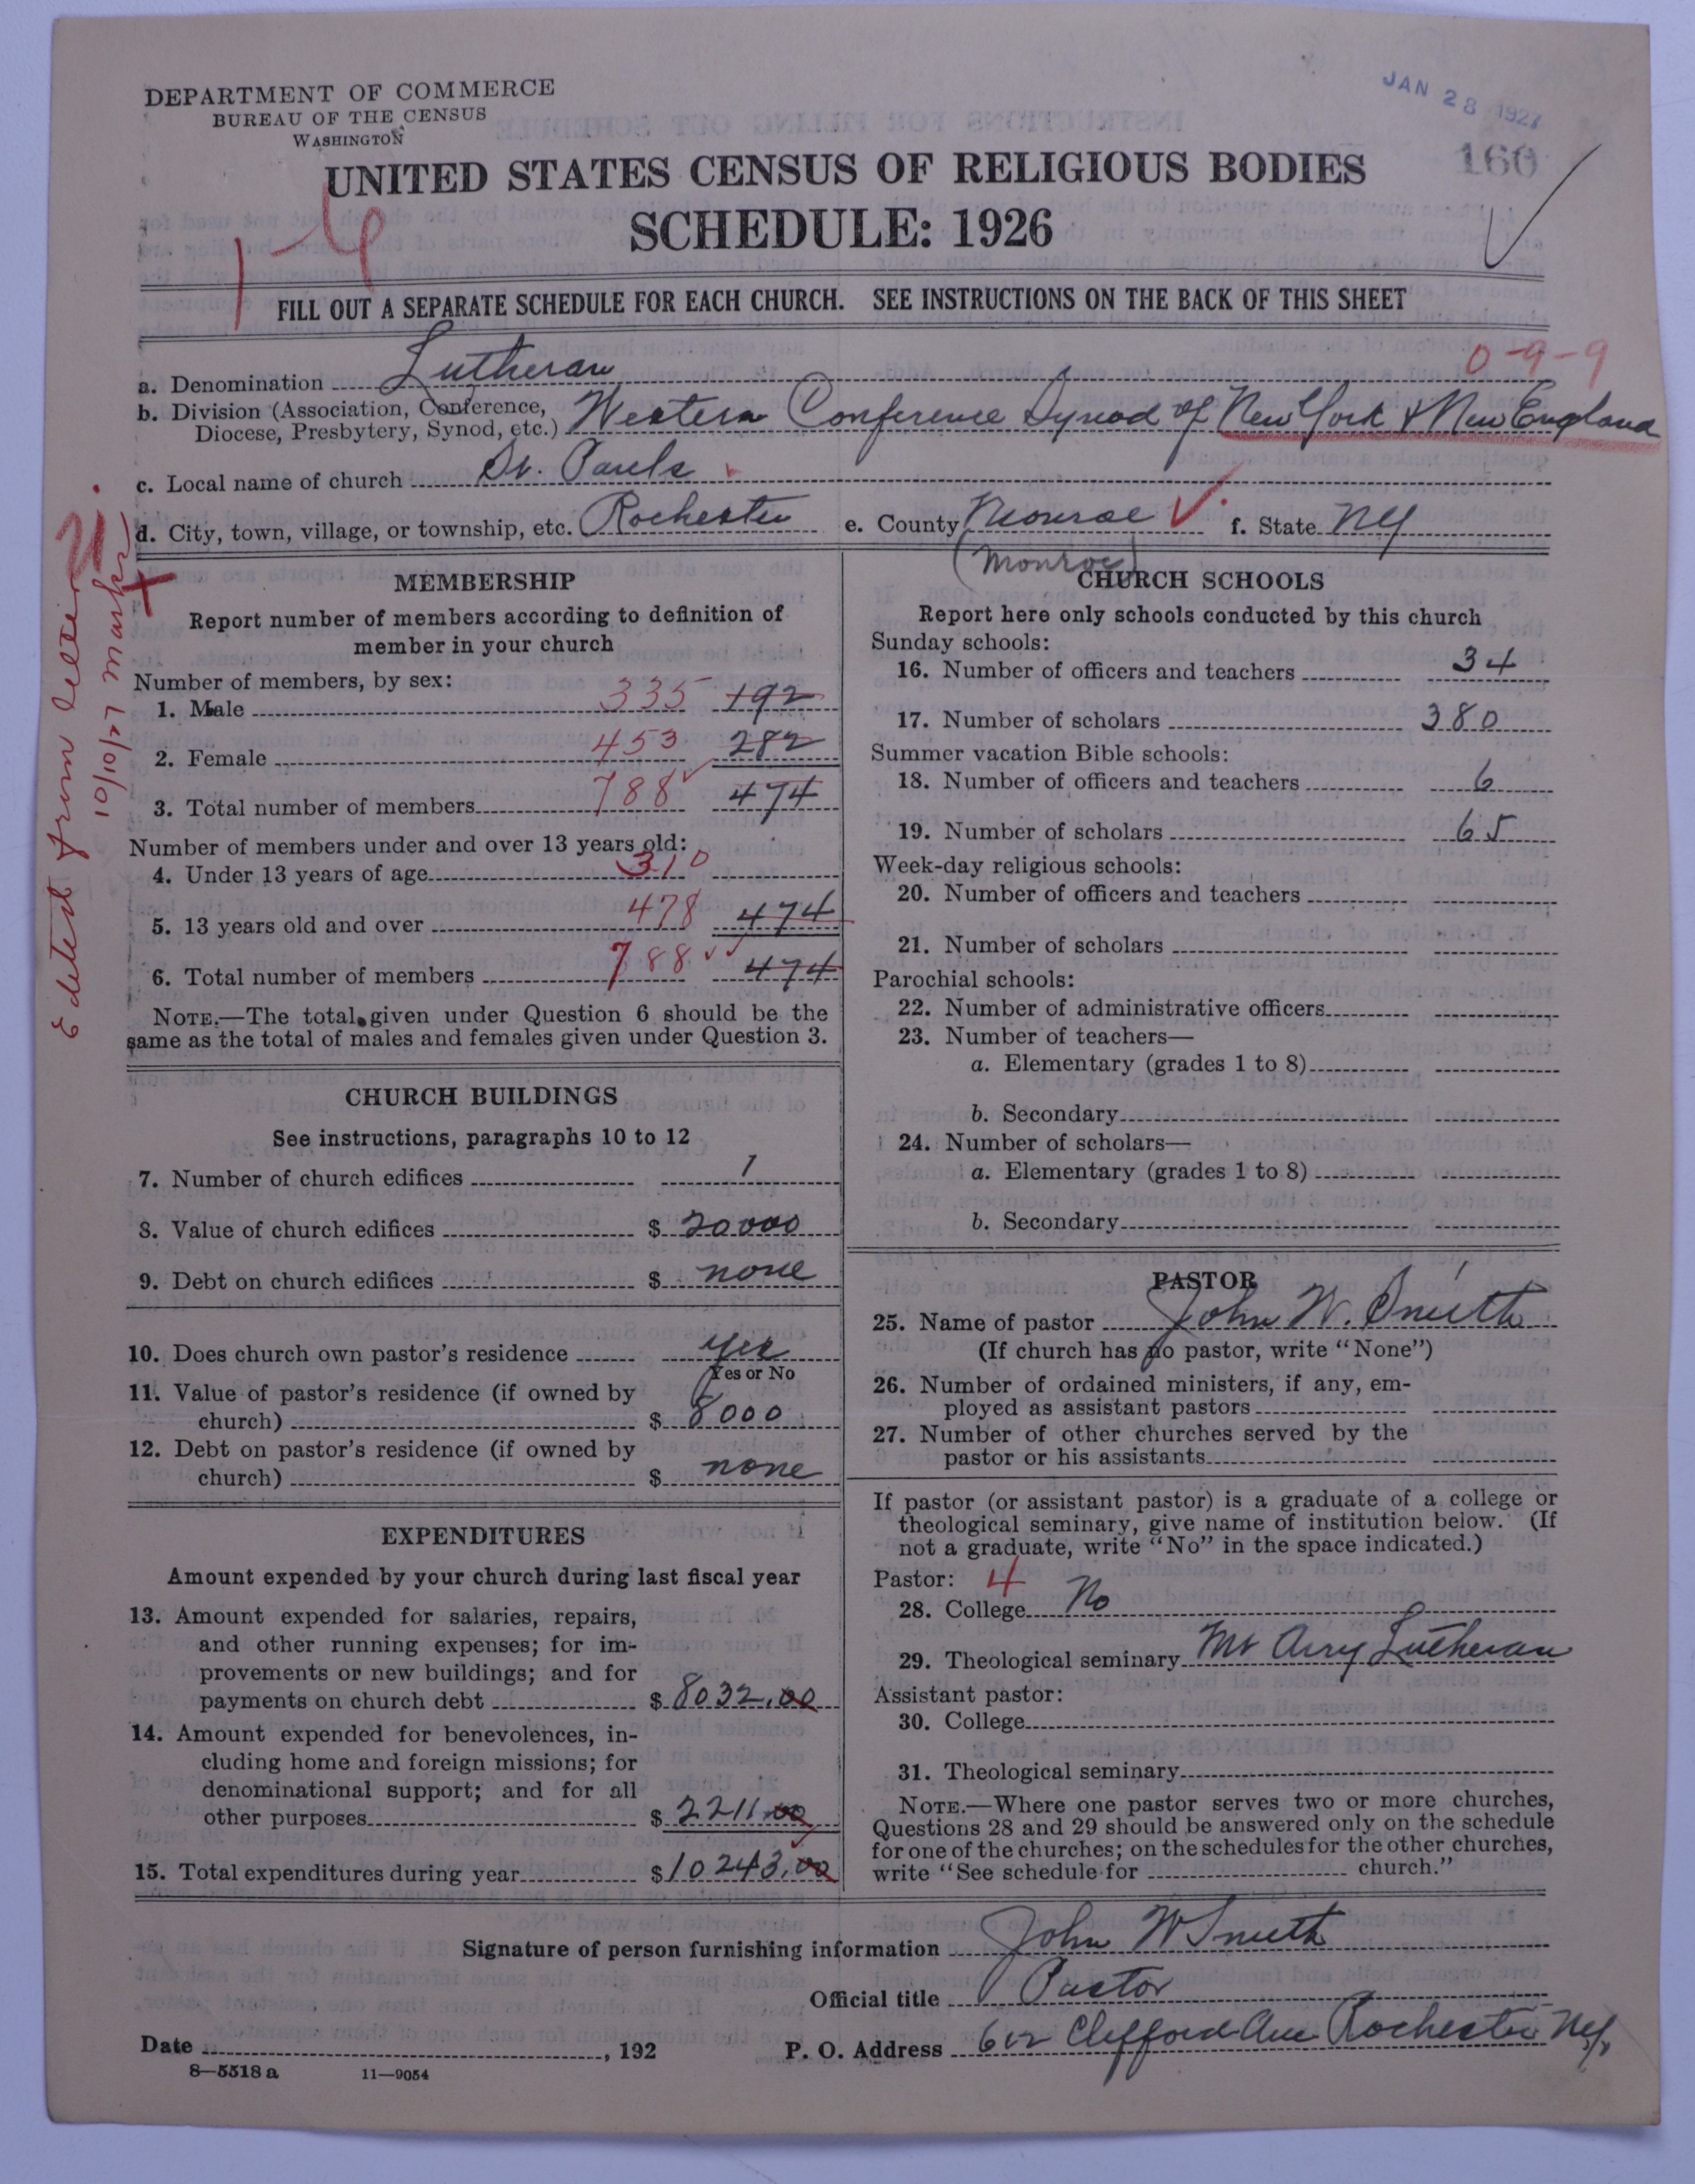 DEPARTMENT OF COMMERCE
BUREAU OF THE CENSUS
WASHINGTON
JAN 28 1927
160
UNITED STATES CENSUS OF RELIGIOUS BODIES
SCHEDULE: 1926
FILL OUT A SEPARATE SCHEDULE FOR EACH CHURCH. SEE INSTRUCTIONS ON THE BACK OF THIS SHEET
0-9-9
a. Denomination Lutheran
b. Division (Association, Conference, Diocese, Presbytery, Synod, etc.) Western Conference Synod of New York & New England
c. Local name of church St. Pauls
d. City, town, village, or township, etc. Rochester e. County Monroe f. State NY
(Monroe)
Edited from letter
10/10/27
MEMBERSHIP
Report number of members according to definition of
member in your church
Number of members, by sex:
1. Male 335 192
2. Female 453 282
3. Total number of members 788 474
Number of members under and over 13 years old:
4. Under 13 years of age 310
5. 13 years old and over 478 474
6. Total number of members 788 474
NOTE.—The total given under Question 6 should be the
same as the total of males and females given under Question 3.
CHURCH BUILDINGS
See instructions, paragraphs 10 to 12
7. Number of church edifices 1
8. Value of church edifices $ 20000
9. Debt on church edifices $ none
10. Does church own pastor's residence yes
Yes or No
11. Value of pastor's residence (if owned by
church) $ 8000
12. Debt on pastor's residence (if owned by
church) $ none
EXPENDITURES
Amount expended by your church during last fiscal year
13. Amount expended for salaries, repairs,
and other running expenses; for im-
provements or new buildings; and for
payments on church debt $ 8032.00
14. Amount expended for benevolences, in-
cluding home and foreign missions; for
denominational support; and for all
other purposes $ 2211.00
15. Total expenditures during year $ 10243.00
CHURCH SCHOOLS
Report here only schools conducted by this church
Sunday schools:
16. Number of officers and teachers 34
17. Number of scholars 380
Summer vacation Bible schools:
18. Number of officers and teachers 6
19. Number of scholars 65
Week-day religious schools:
20. Number of officers and teachers
21. Number of scholars
Parochial schools:
22. Number of administrative officers
23. Number of teachers—
a. Elementary (grades 1 to 8)
b. Secondary
24. Number of scholars—
a. Elementary (grades 1 to 8)
b. Secondary
PASTOR
25. Name of pastor John W. Smith
(If church has no pastor, write "None")
26. Number of ordained ministers, if any, em-
ployed as assistant pastors
27. Number of other churches served by the
pastor or his assistants
If pastor (or assistant pastor) is a graduate of a college or
theological seminary, give name of institution below. (If
not a graduate, write "No" in the space indicated.)
Pastor: 4
28. College No
29. Theological seminary Mt Airy Lutheran
Assistant pastor:
30. College
31. Theological seminary
NOTE.—Where one pastor serves two or more churches,
Questions 28 and 29 should be answered only on the schedule
for one of the churches; on the schedules for the other churches,
write "See schedule for church."
Signature of person furnishing information John W Smith
Official title Pastor
Date , 192 P. O. Address 612 Clifford Ave Rochester NY
8—5518 a 11—9054